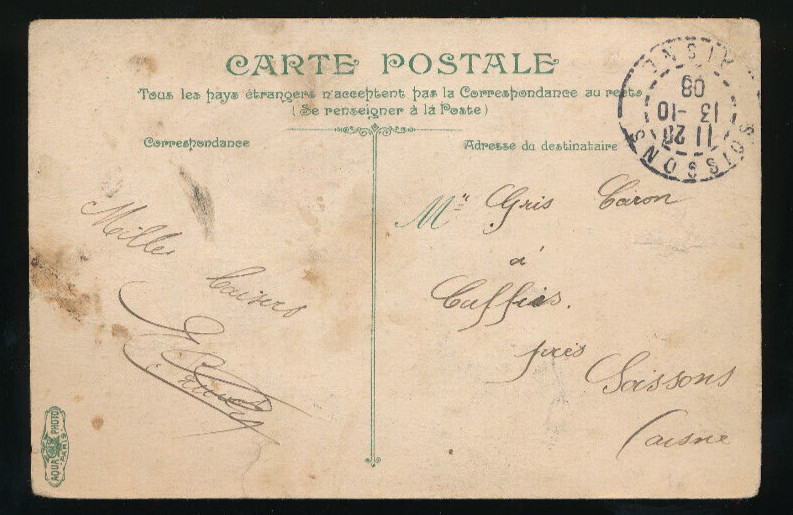 CARTE POSTALE
Tous les pays étrangers n'acceptent pas la Correspondance au recto
(Se renseigner à la Poste)
Correspondance
Adresse du destinataire
SOISSONS
11 20
13 -10
08
AISNE
Mille
baisers
Mr Gris Caron
à
Cuffies.
près
Soissons
(aisne
AQUA PHOTO
PARIS